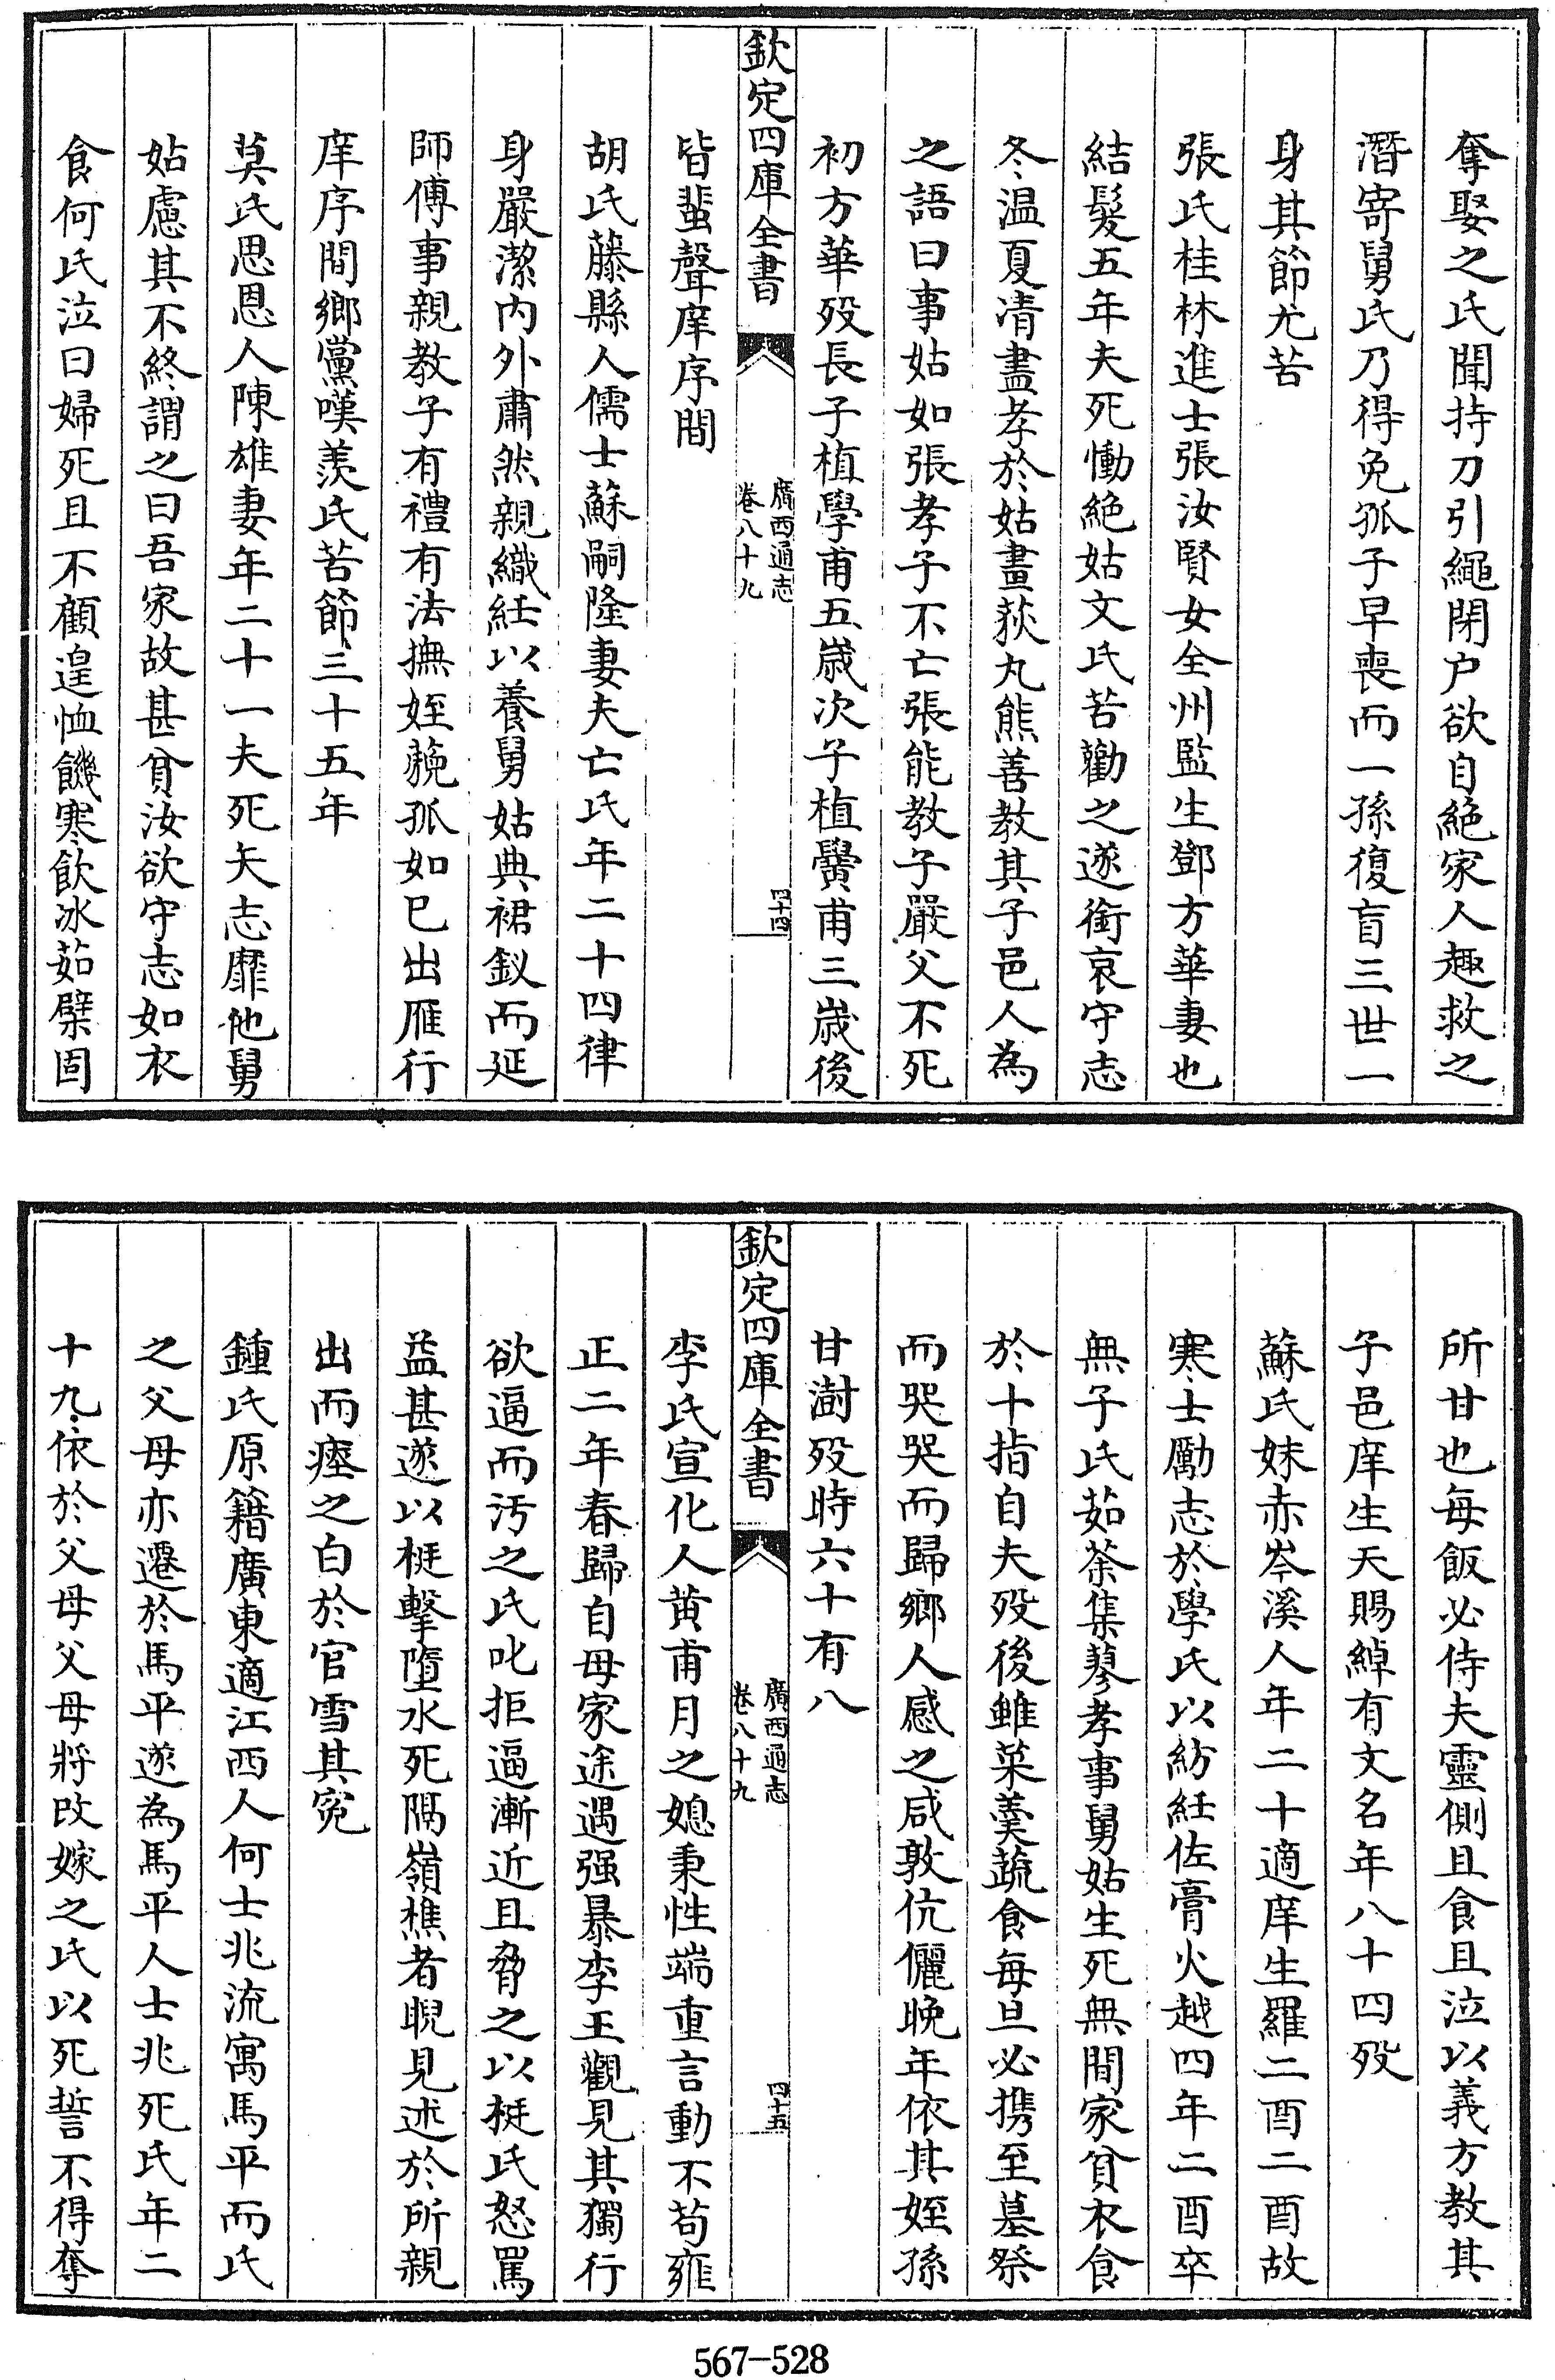 奪娶之氏聞持刀引繩閉户欲自絶家人趣救之
潛寄舅氏乃得免孤子早喪而一孫復盲三世一
身其節尤苦
張氏桂林進士張汝賢女全州監生鄧方華妻也
結髮五年夫死慟絶姑文氏苦勸之遂銜哀守志
冬温夏凊盡孝於姑畫荻丸熊善教其子邑人為
之語曰事姑如張孝子不亡張能教子嚴父不死
初方華殁長子植學甫五歳次子植黌甫三歳後
欽定四庫全書
廣西通志
卷八十九
四十四
皆蜚聲庠序間
胡氏藤縣人儒士蘇嗣隆妻夫亡氏年二十四律
身嚴潔内外肅然親織紝以養舅姑典裙釵而延
師傅事親教子有禮有法撫姪藐孤如已出雁行
庠序間鄉黨嘆羨氏苦節三十五年
莫氏思恩人陳雄妻年二十一夫死矢志靡他舅
姑慮其不終謂之曰吾家故甚貧汝欲守志如衣
食何氏泣曰婦死且不顧遑恤饑寒飲冰茹檗固
所甘也每飯必侍夫靈側且食且泣以義方教其
子邑庠生天賜綽有文名年八十四殁
蘇氏妹赤岑溪人年二十適庠生羅二酉二酉故
寒士勵志於學氏以紡紝佐膏火越四年二酉卒
無子氏茹荼集蓼孝事舅姑生死無間家貧衣食
於十指自夫殁後雖菜羹蔬食每旦必携至墓祭
而哭哭而歸鄉人感之咸敦伉儷晚年依其姪孫
甘澍殁時六十有八
欽定四庫全書
廣西通志
卷八十九
四十五
李氏宣化人黄甫月之媳秉性端重言動不苟雍
正二年春歸自母家途遇强暴李王觀見其獨行
欲逼而汚之氏叱拒逼漸近且脅之以梃氏怒罵
益甚遂以梃擊墮水死隔嶺樵者睨見述於所親
出而瘞之白於官雪其寃
鍾氏原籍廣東適江西人何士兆流寓馬平而氏
之父母亦遷於馬平遂為馬平人士兆死氏年二
十九依於父母父母將改嫁之氏以死誓不得奪
567-528